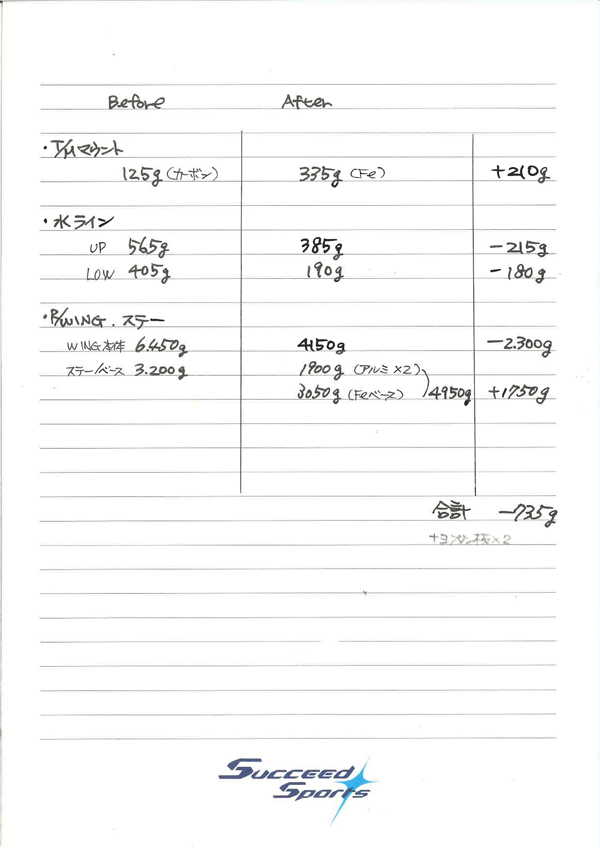 Before After
・T/Mマウント
125g(カーボン) 335g(Fe) +210g
・水ライン
UP 565g 385g -215g
LOW 405g 190g -180g
・R/WING.ステー
WING本体 6.450g 4150g -2.300g
ステー/ベース 3.200g 1900g(アルミ×2)
3050g(Feベース) 4950g +1750g
合計 -735g
×2
Succeed
Sports